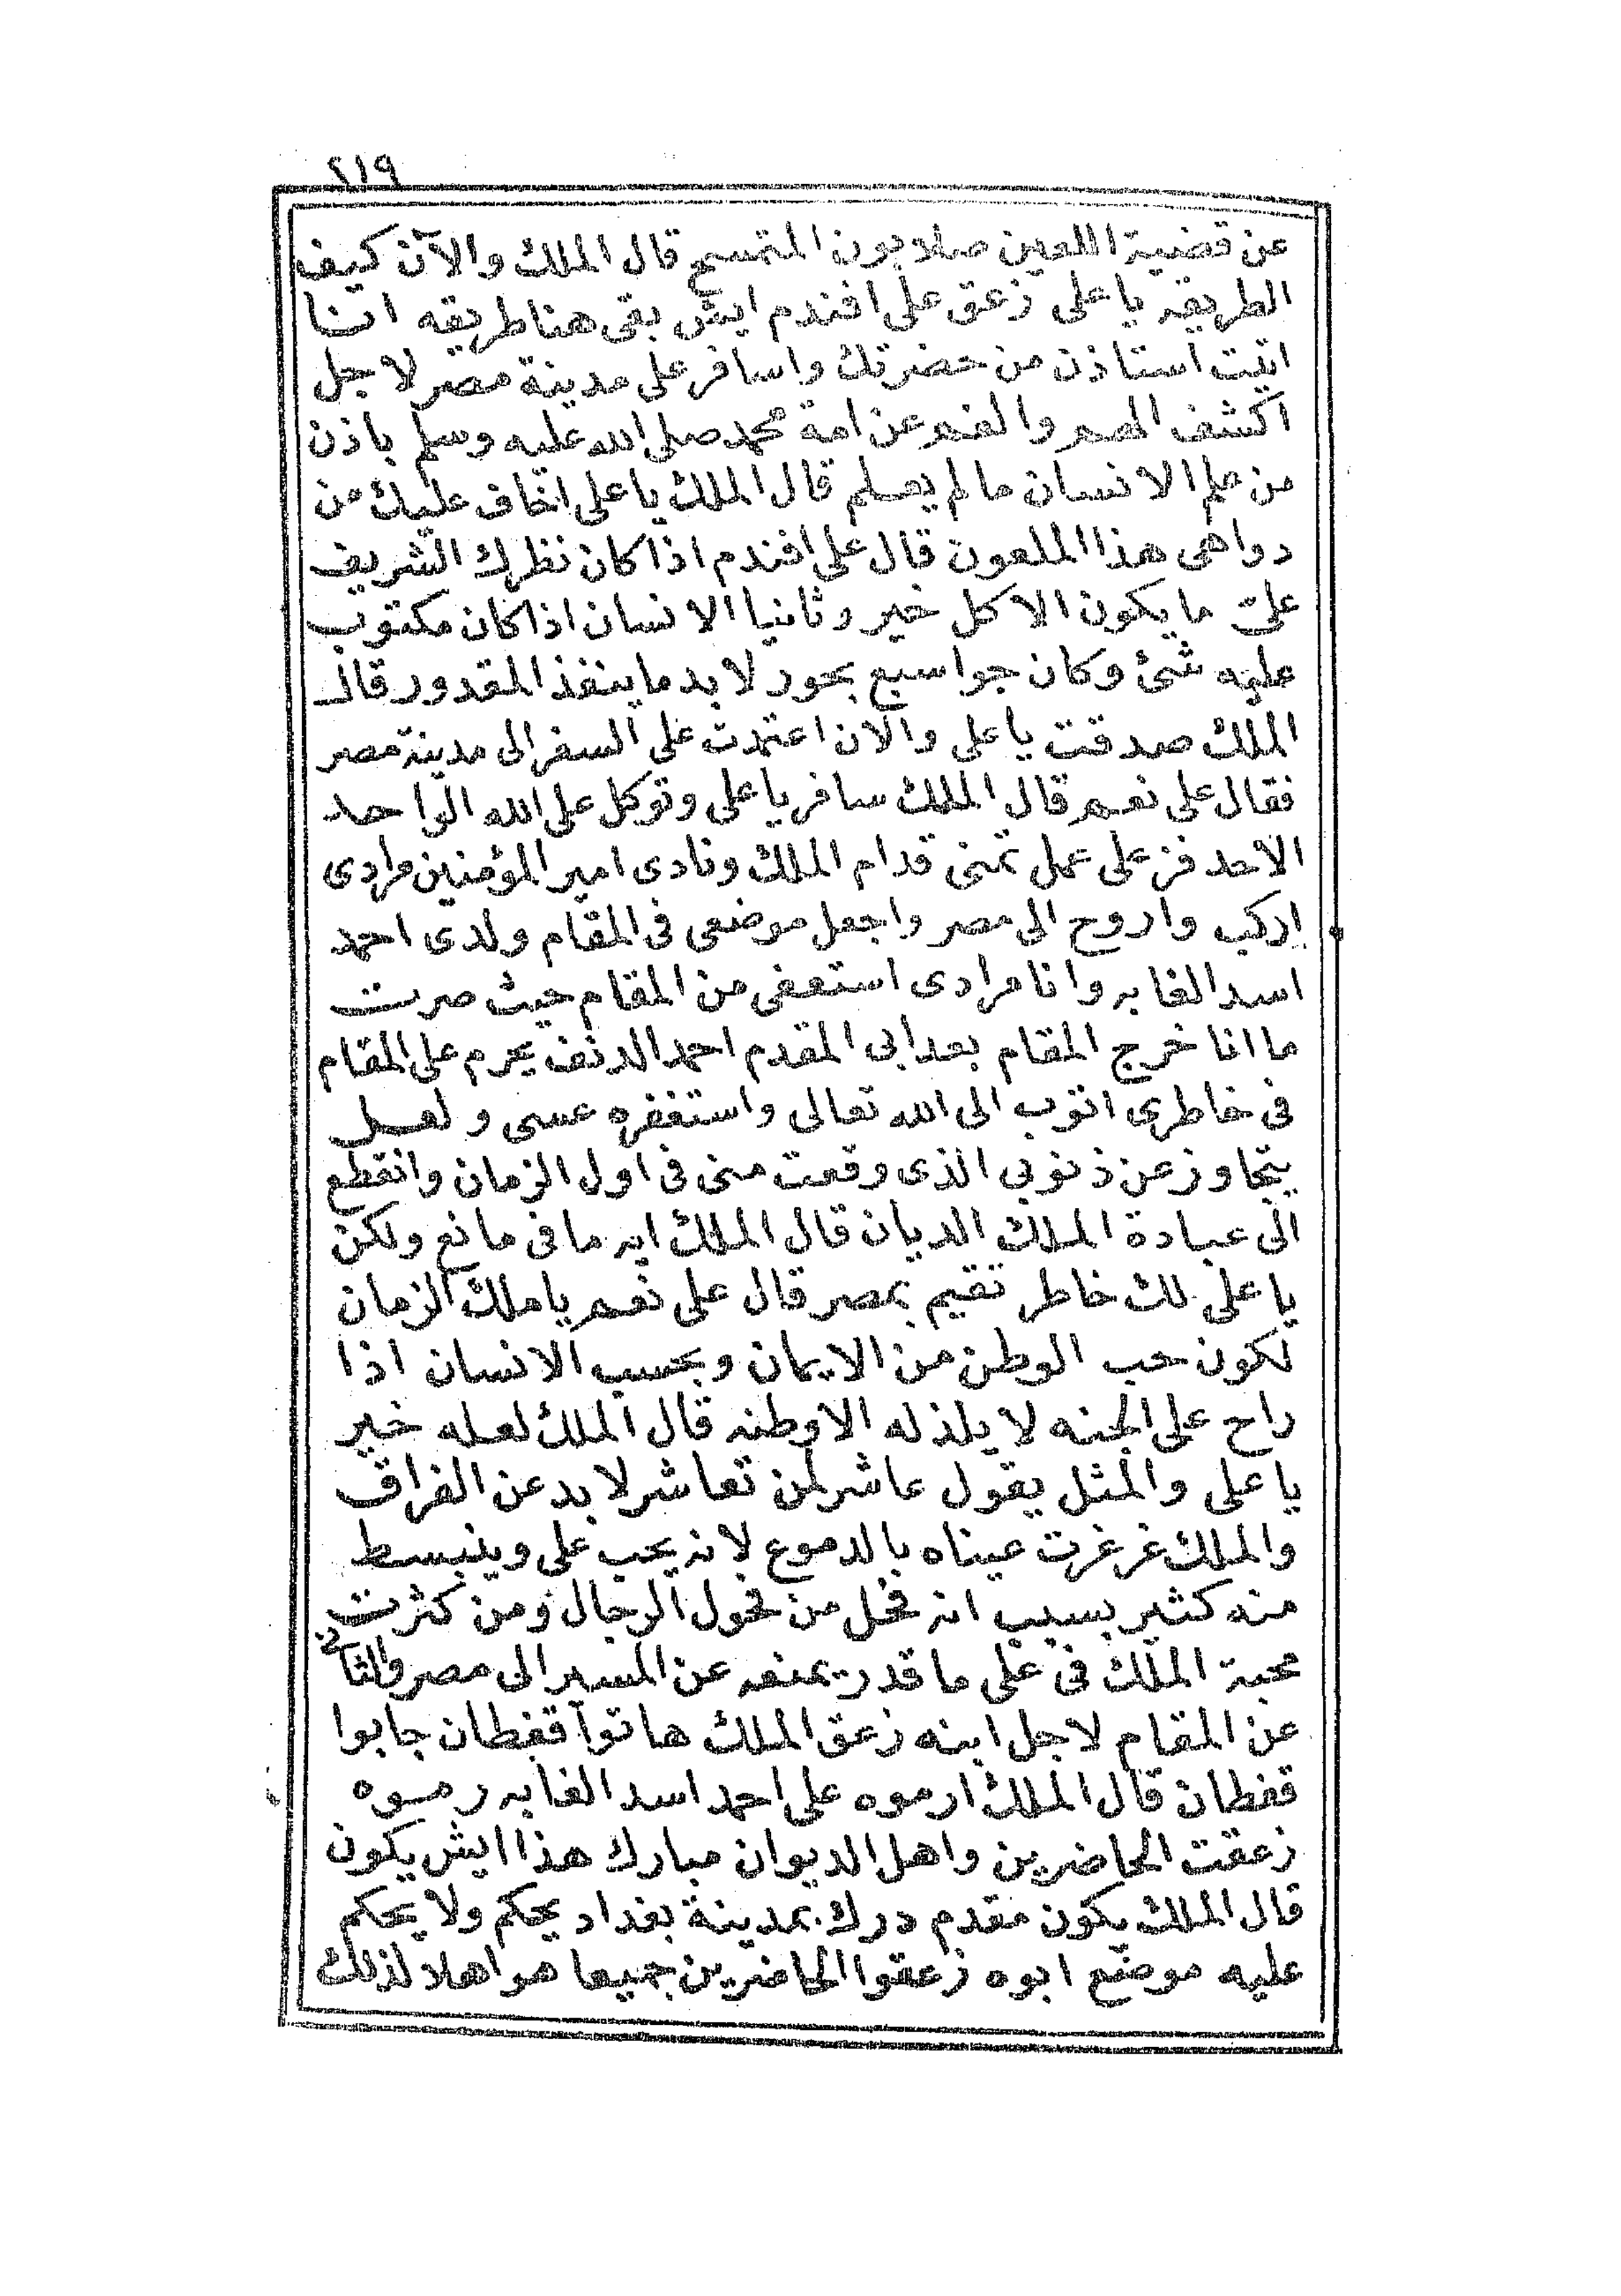 ٢١٩
عن قضية اللعين صلابون المتمسح قال الملك والآن كيف
الطريقه يا على زعق على افندم ايش بقى هنا طريقه انا
اتيت استاذن من حضرتك واسافر على مدينة مصر لاجل
اكشف الهم والغم عن امة محمد صلى الله عليه وسلم باذن
من علم الانسان مالم يعلم قال الملك يا على اخاف عليك من
دواهى هذا الملعون قال على افندم اذا كان نظرك الشريف
علىّ ما يكون الا كل خير وثانيا الانسان اذا كان مكتوب
عليه شئ وكان جوا سبع بحور لا بد ما ينفذ المقدور قال
الملك صدقت يا على والان اعتمدت على السفر الى مدينة مصر
فقال على نعم قال الملك سافر يا على وتوكل على الله الواحد
الاحد فز على عمل تمنى قدام الملك ونادى امير المؤمنين مرادى
اركب واروح الى مصر واجعل موضعى فى المقام ولدى احمد
اسد الغابه وانا مرادى استعفى من المقام حيث صرت
ما انا خرج المقام بعد ابى المقدم احمد الدنف يحرم على المقام
فى خاطرى اتوب الى الله تعالى واستغفره عسى ولعل
يتجاوز عن ذنوبى الذى وقعت منى فى اول الزمان وانقطع
الى عبادة الملك الديان قال الملك ايه ما فى مانع ولكن
يا على لك خاطر تقيم بمصر قال على نعم يا ملك الزمان
لكون حب الوطن من الايمان وبحسب الانسان اذا
راح على الجنه لا يلذ له الا وطنه قال الملك لعله خير
يا على والمثل يقول عاشر لمن تعاشر لا بد عن الفراق
والملك غرغرت عيناه بالدموع لانه يحب على وينبسط
منه كثير بسبب انه فحل من فحول الرجال ومن كثرت
محبة الملك فى على ما قدر يمنعه عن المسير الى مصر والثانى
عن المقام لاجل ابنه زعق الملك هاتوا قفطان جابوا
قفطان قال الملك ارموه على احمد اسد الغابه رموه
زعقت الحاضرين واهل الديوان مبارك هذا ايش يكون
قال الملك يكون مقدم درك بمدينة بغداد يحكم ولا يحكم
عليه موضع ابوه زعقوا الحاضرين جميعا هو اهلا لذلك